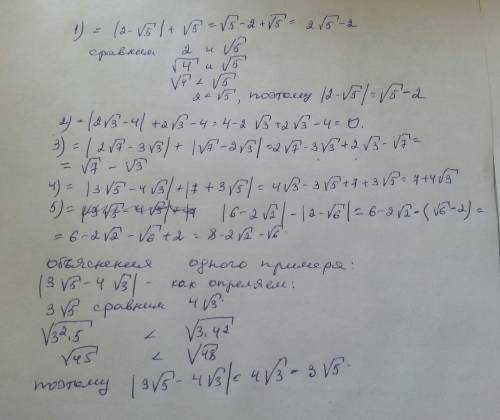 1) = |2-√5| + √5 = √5-2+√5 = 2√5-2
сравним 2 и √5
√4 и √5
√4 < √5
2 < √5, поэтому |2-√5| = √5-2
2) = |2√3-4| + 2√3-4 = 4-2√3+2√3-4 = 0.
3) = |2√7-3√3| + |√7-2√3| = 2√7-3√3+2√3-√7 =
= √7 - √3
4) = |3√5-4√3| + |7+3√5| = 4√3-3√5+7+3√5 = 7+4√3
5) = |6-2√2| - |2-√6| = 6-2√2-(√6-2) =
= 6-2√2-√6+2 = 8-2√2-√6.
объяснения одного примера:
|3√5-4√3| - как опреляем:
3√5 сравним 4√3.
√3².5 < √3.42
√45 < √48
поэтому |3√5-4√3| = 4√3-3√5.